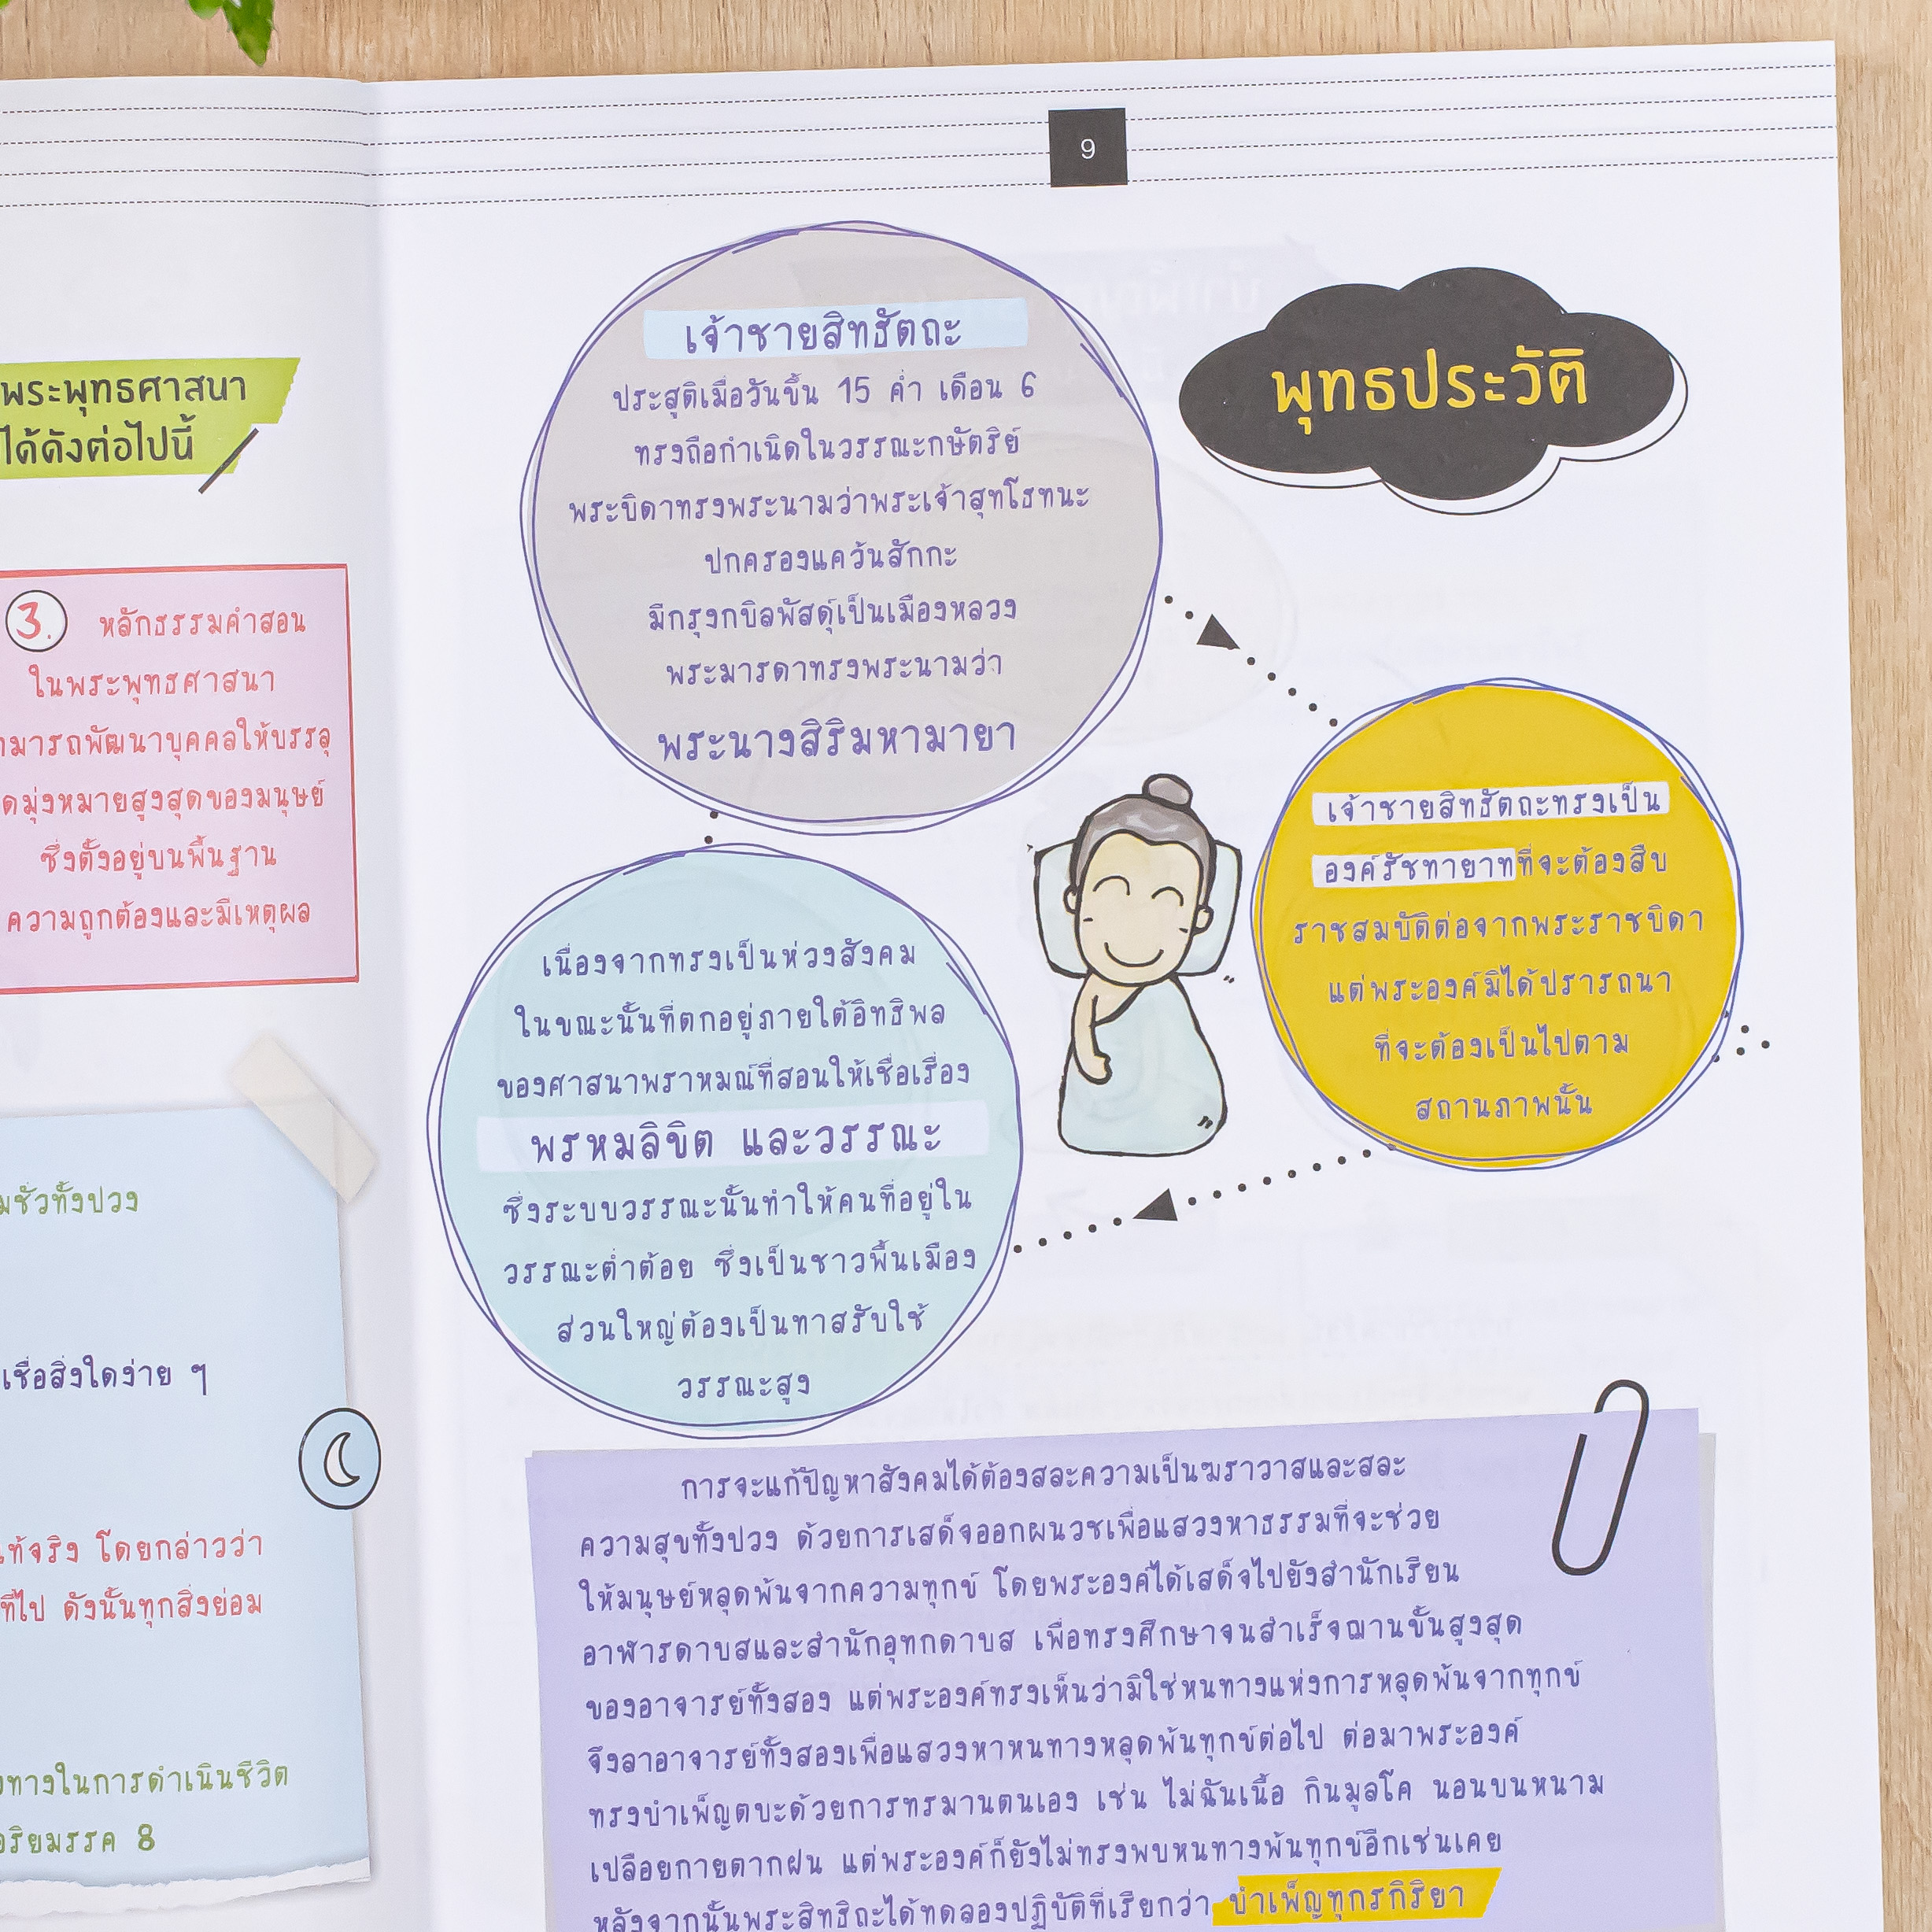 พระพุทธศาสนา
ได้ดังต่อไปนี้
3. หลักธรรมคำสอน
ในพระพุทธศาสนา
พัฒนาบุคคลให้บรรลุ
มุ่งหมายสูงสุดของมนุษย์
ซึ่งตั้งอยู่บนพื้นฐาน
ความถูกต้องและมีเหตุผล
ชั่วทั้งปวง
เชื่อสิ่งใดง่าย ๆ
แท้จริง โดยกล่าวว่า
ที่ไป ดังนั้นทุกสิ่งย่อม
ทางในการดำเนินชีวิต
อริยมรรค 8
9
พุทธประวัติ
เจ้าชายสิทธัตถะ
ประสูติเมื่อวันขึ้น 15 ค่ำ เดือน 6
ทรงถือกำเนิดในวรรณะกษัตริย์
พระบิดาทรงพระนามว่าพระเจ้าสุทโธทนะ
ปกครองแคว้นสักกะ
มีกรุงกบิลพัสดุ์เป็นเมืองหลวง
พระมารดาทรงพระนามว่า
พระนางสิริมหามายา
เจ้าชายสิทธัตถะทรงเป็น
องค์รัชทายาทที่จะต้องสืบ
ราชสมบัติต่อจากพระราชบิดา
แต่พระองค์มิได้ปรารถนา
ที่จะต้องเป็นไปตาม
สถานภาพนั้น
เนื่องจากทรงเป็นห่วงสังคม
ในขณะนั้นที่ตกอยู่ภายใต้อิทธิพล
ของศาสนาพราหมณ์ที่สอนให้เชื่อเรื่อง
พรหมลิขิต และวรรณะ
ซึ่งระบบวรรณะนั้นทำให้คนที่อยู่ใน
วรรณะต่ำต้อย ซึ่งเป็นชาวพื้นเมือง
ส่วนใหญ่ต้องเป็นทาสรับใช้
วรรณะสูง
การจะแก้ปัญหาสังคมได้ต้องสละความเป็นฆราวาสและสละ
ความสุขทั้งปวง ด้วยการเสด็จออกผนวชเพื่อแสวงหาธรรมที่จะช่วย
ให้มนุษย์หลุดพ้นจากความทุกข์ โดยพระองค์ได้เสด็จไปยังสำนักเรียน
อาฬารดาบสและสำนักอุทกดาบส เพื่อทรงศึกษาจนสำเร็จฌานขั้นสูงสุด
ของอาจารย์ทั้งสอง แต่พระองค์ทรงเห็นว่ามิใช่หนทางแห่งการหลุดพ้นจากทุกข์
จึงลาอาจารย์ทั้งสองเพื่อแสวงหาหนทางหลุดพ้นทุกข์ต่อไป ต่อมาพระองค์
ทรงบำเพ็ญตบะด้วยการทรมานตนเอง เช่น ไม่ฉันเนื้อ กินมูลโค นอนบนหนาม
เปลือยกายตากฝน แต่พระองค์ก็ยังไม่ทรงพบหนทางพ้นทุกข์อีกเช่นเคย
หลังจากนั้นพระสิทธิถะได้ทดลองปฏิบัติที่เรียกว่า บำเพ็ญทุกรกิริยา